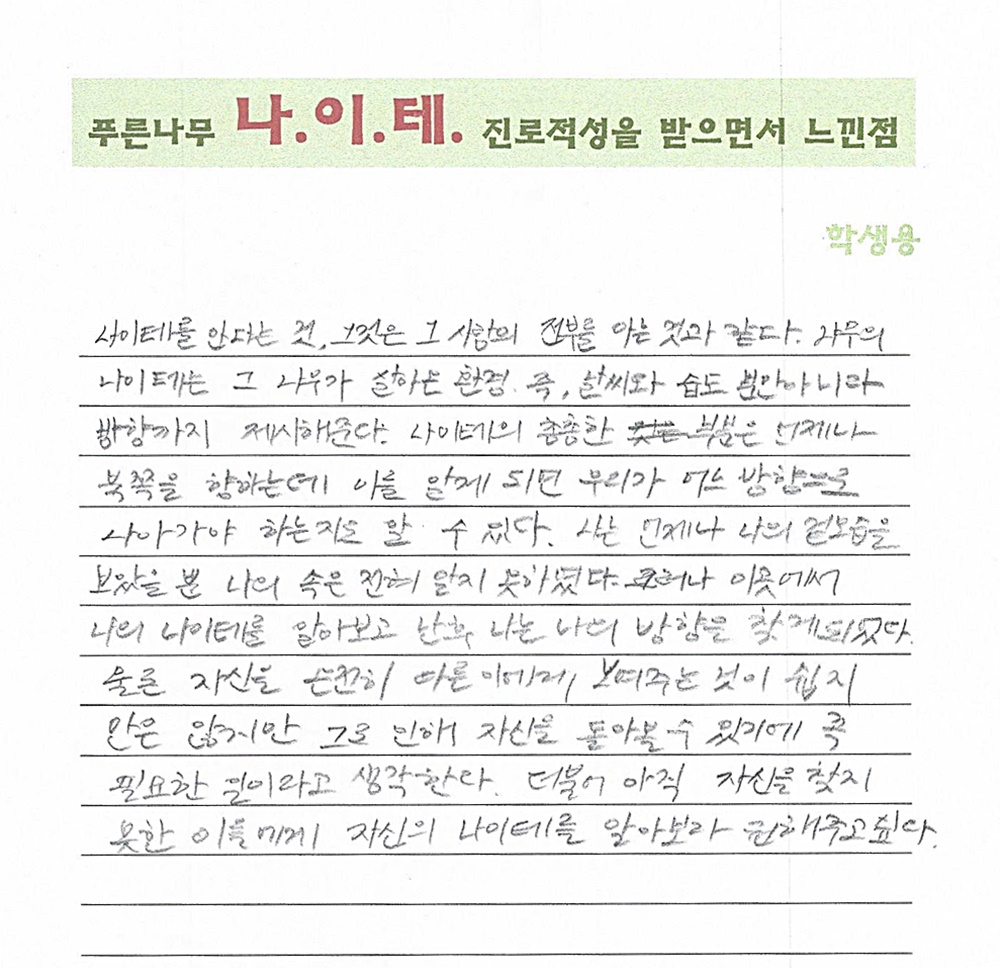 푸른나무 나.이.테. 진로적성을 받으면서 느낀점
학생용
나이테를 안다는 것, 그것은 그 사람의 전부를 아는 것과 같다. 나무의
나이테는 그 나무가 속하는 환경. 즉, 날씨와 습도 뿐만아니라
방향까지 제시해준다. 나이테의 촘촘한 부분은 언제나
북쪽을 향하는데 이를 알게 되면 우리가 어느 방향으로
나아가야 하는지도 알 수 있다. 나는 언제나 나의 겉모습을
보았을 뿐 나의 속은 전혀 알지 못하였다. 그러나 이곳에서
나의 나이테를 알아보고 난 후, 나는 나의 방향을 찾게되었다.
물론 자신을 온전히 다른이에게, 보여주는 것이 쉽지
만은 않지만 그로 인해 자신을 돌아볼 수 있기에 꼭
필요한 일이라고 생각한다. 더불어 아직 자신을 찾지
못한 이들에게 자신의 나이테를 알아보라 권해주고싶다.